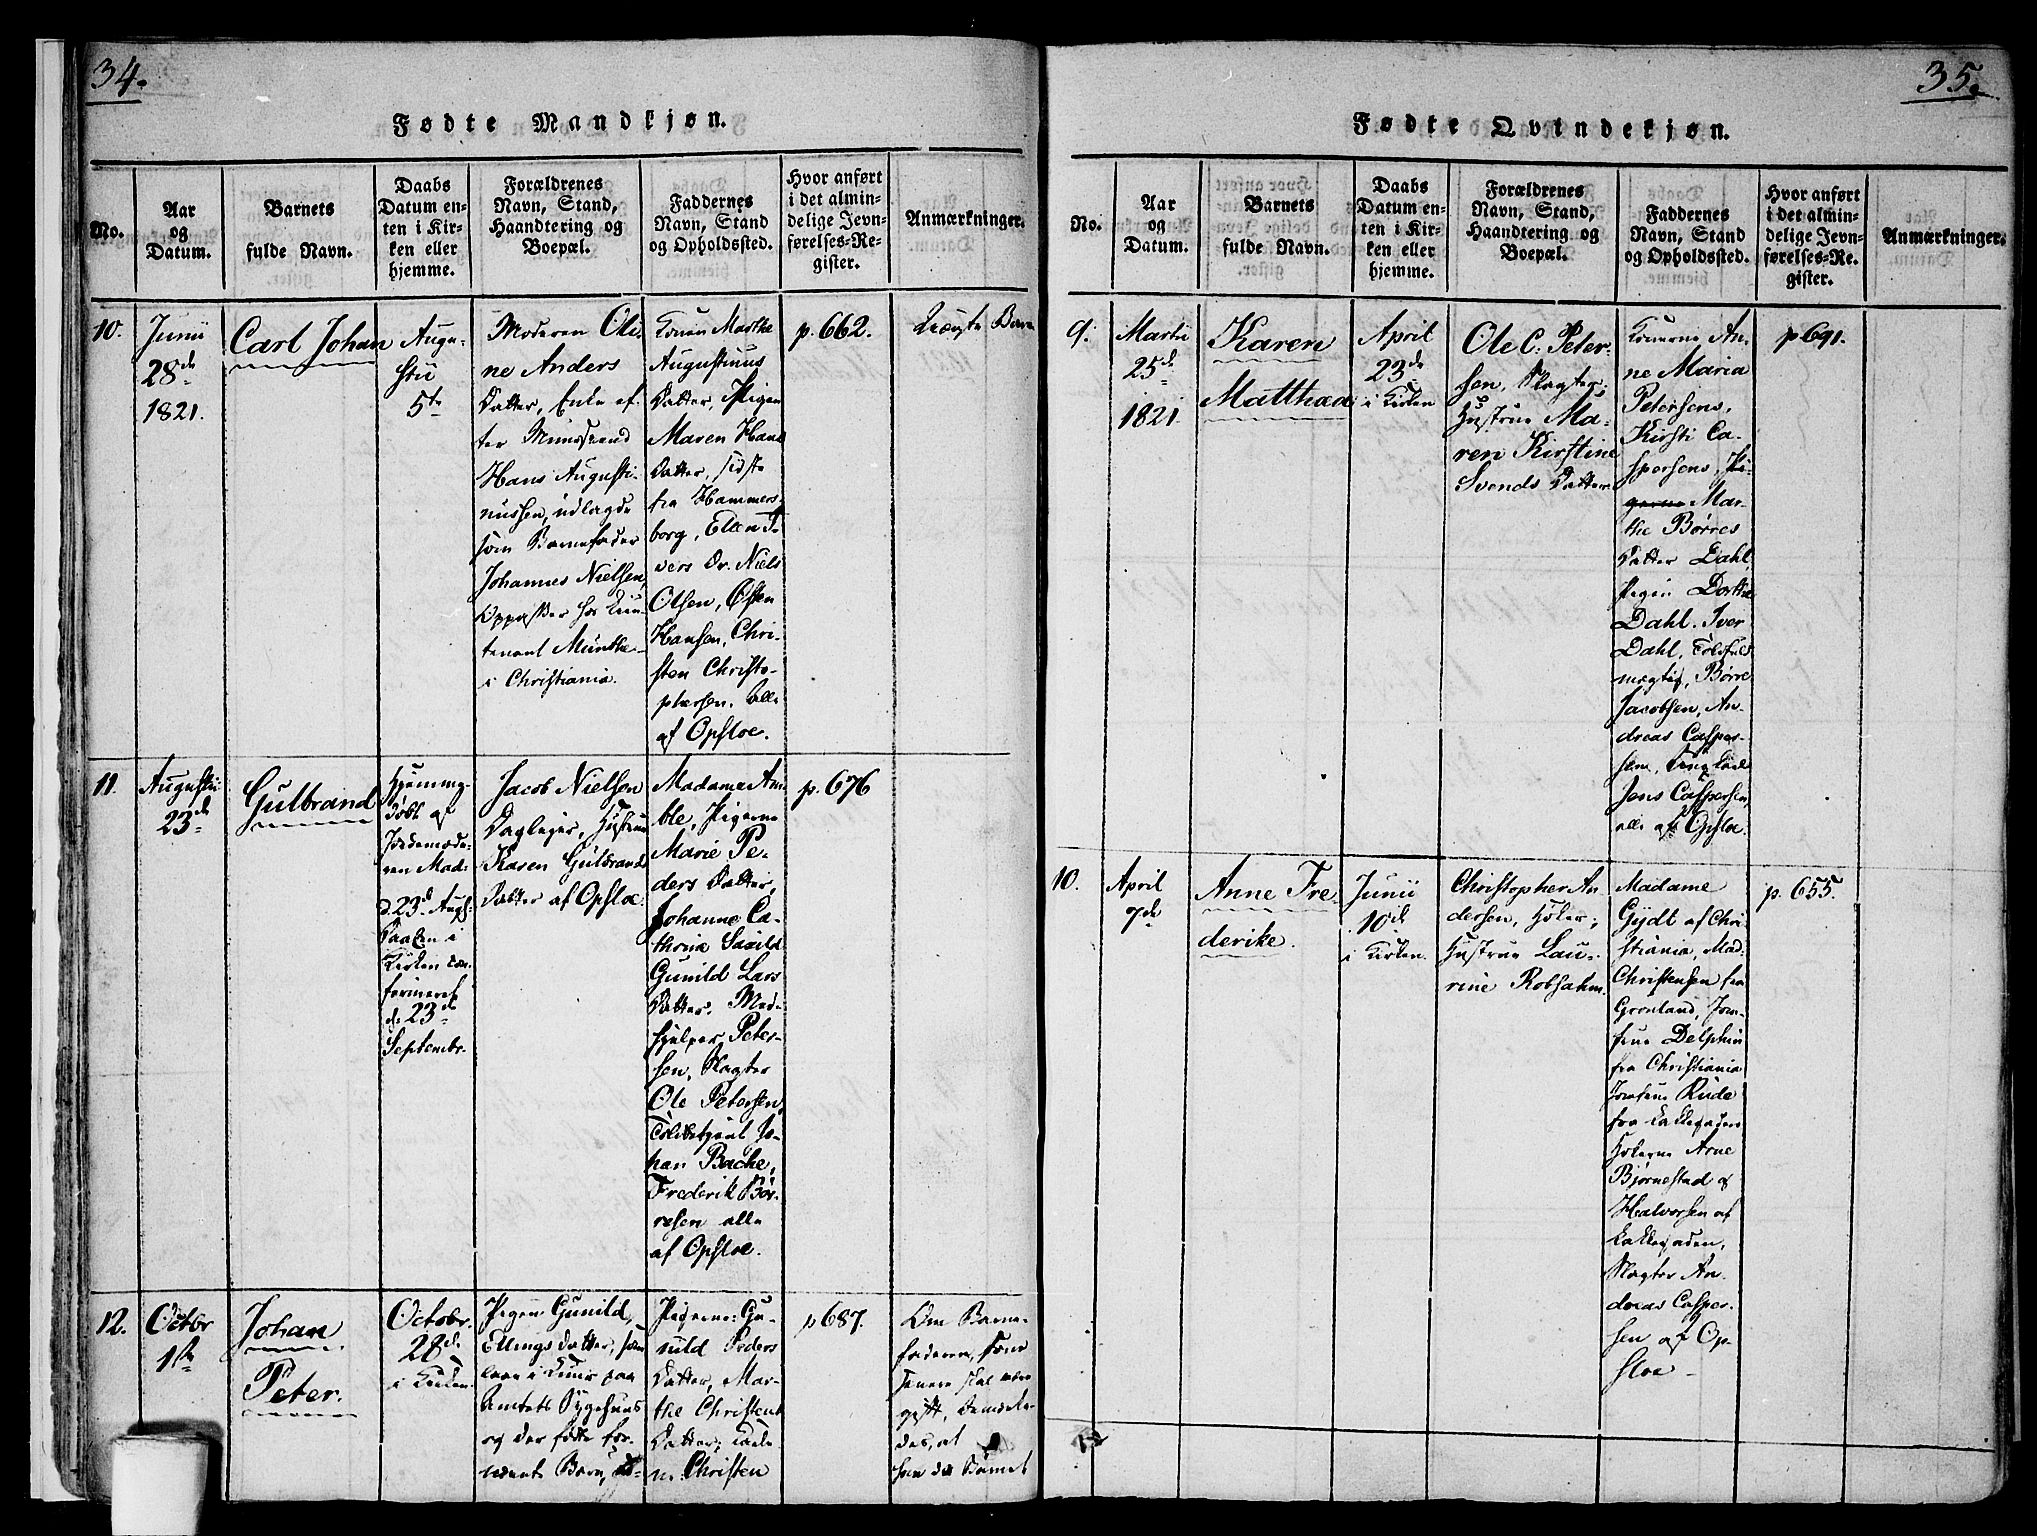 34.
Fødte Mandkjøn.
No.
Aar
og
Datum.
Barnets
fulde Navn.
Daabs
Datum en-
ten i Kir-
ken eller
hjemme.
Forældrenes
Navn, Stand,
Haandtering og
Boepæl.
Faddernes
Navn, Stand
og Opholdssted.
Hvor anført
i det almin-
delige Jevn-
førelses-Re-
gister.
Anmærkninger.
10.
Junii
28de
1821.
Carl Johan
Augu-
stii
5te
Moderen Oli-
ne Anders
Datter, Enke ef-
ter
Hans Augusti-
nussen, udlagde
som Barnefader
Johannes Nielsen,
Oppasser hos Lieu-
tenant Münthe
i Christiania.
Konen Marthe
Augustinus
Datter, Pigen
Maren Hans
Datter, sidste
fra Hammers-
borg, Ellen I-
vers Dr. Niels
Olsen, Østen
Hansen, Chri-
sten Christo-
phersen. alle
af Opsloe.
p. 662.
Uægte Barn
11.
Augustii
23de
Gulbrand
Hjemme-
døbt af
Jordemode-
ren Mad.
d. 23d Augs.
Daaben i
Kirken con-
fermeret
d. 23de
Septembr.
Jacob Nielsen
Daglejer, Hustrue
Karen Gulbrands
Datter af Opsloe.
Madame Am-
ble, Pigerne
Marie Pe-
ders Datter,
Johanne Ca-
thrine Saxild
Gunild Lars
Datter. Med-
hjelper Peter-
sen, Slagter
Ole Petersen
Toldbetjent Jo-
han Bache,
Frederik Bør-
resen alle
af Opsloe.
p. 676
12.
Octbr
1ste
Johan
Peter.
Octobr.
28de
i Kirken.
Pigen Gunild
Ellings Datter, som
laae i Kuur paa
Amtets Sygehuus
og der fødte for-
nævnte Barn, ud-
Pigerne: Gu-
nild Peders
Datter, Mar-
the Christens
Datter,
Christen
p 687.
Om Barne-
faderen, som
senere skal være
gift,
des, at
han da Barnet
35.
Fødte Qvindekjøn.
No.
Aar
og
Datum.
Barnets
fulde Navn.
Daabs
Datum en-
ten i Kir-
ken eller
hjemme.
Forældrenes
Navn, Stand,
Haandtering og
Boepæl.
Faddernes
Navn, Stand
og Opholdssted.
Hvor anført
i det almin-
delige Jevn-
førelses-Re-
gister.
Anmærkninger.
9.
Martii
25de
1821.
Karen
Matthea
April
23de
i Kirken
Ole C: Peter-
sen, Slagter.
Hustrue Ma-
ren Kirstine
Svends Datter.
Konerne An-
ne Maria
Petersens,
Kirsti Ca-
spersens, Pi-
gerne Mar-
the Børres
Datter Dahl,
Pigen Dorthe
Dahl. Iver
Dahl, Toldfuld-
mægtig, Børre
Jacobsen, An-
dreas Casper-
sen,
Jens Caspersen
alle af Opsloe.
10.
April
7de
Anne Fre-
derike.
Junii
10de
i Kirken.
Christopher An-
dersen, Høker;
Hustrue Lau-
rine Robsahm.
Madame
Gydt af Chri-
stiania, Mad.
Christensen fra
Grønland, Jom-
frue Delphin
fra Christiania
Jomfrue Rude
fra Lakkegaden
Høkerne Arne
Bjørnestad og
Halvorsen af
Lakkegaden,
Slagter An-
dreas Casper-
sen af Op-
sloe
p. 655.